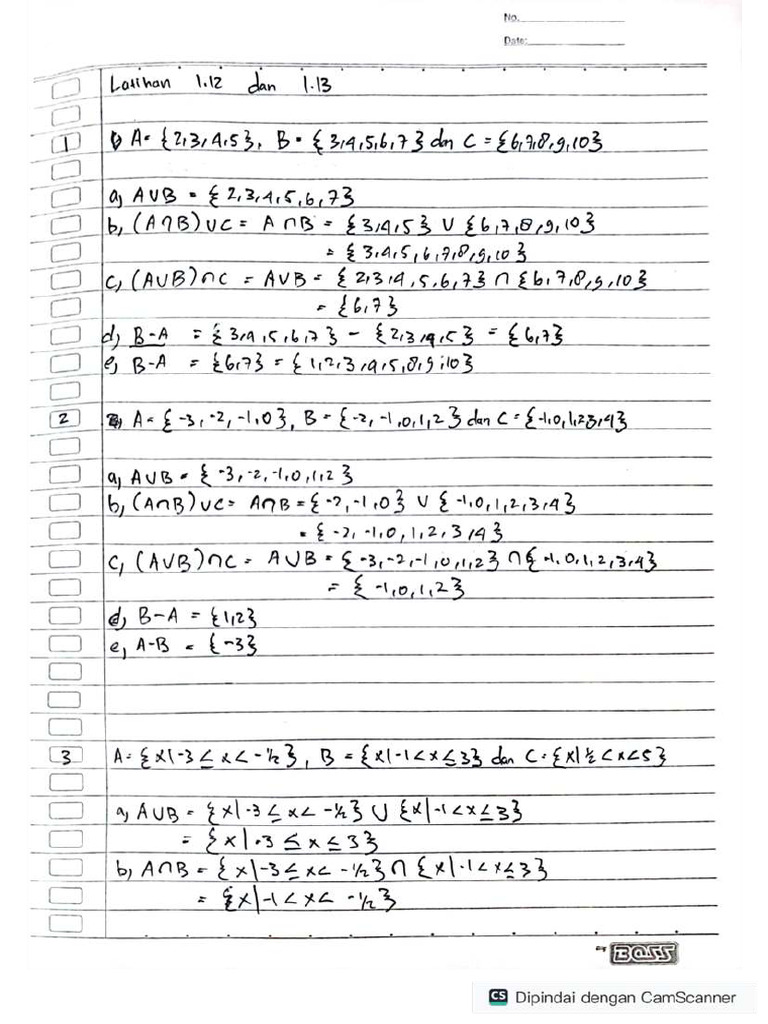 No.
Date:
Latihan 1.12 dan 1.13
1 A = {2,3,4,5}, B = {3,4,5,6,7} dan C = {6,7,8,9,10}
a) A∪B = {2,3,4,5,6,7}
b) (A∩B)∪C = A∩B = {3,4,5} ∪ {6,7,8,9,10}
= {3,4,5,6,7,8,9,10}
c) (A∪B)∩C = A∪B = {2,3,4,5,6,7} ∩ {6,7,8,9,10}
= {6,7}
d) B-A = {3,4,5,6,7} - {2,3,4,5} = {6,7}
e) B-A = {6,7} = {1,2,3,4,5,8,9,10}
2 A = {-3,-2,-1,0}, B = {-2,-1,0,1,2} dan C = {-1,0,1,2,3,4}
a) A∪B = {-3,-2,-1,0,1,2}
b) (A∩B)∪C = A∩B = {-2,-1,0} ∪ {-1,0,1,2,3,4}
= {-2,-1,0,1,2,3,4}
c) (A∪B)∩C = A∪B = {-3,-2,-1,0,1,2} ∩ {-1,0,1,2,3,4}
= {-1,0,1,2}
d) B-A = {1,2}
e) A-B = {-3}
3 A = {x|-3 ≤ x < -1/2}, B = {x|-1 < x ≤ 3} dan C = {x|1/2 < x < 5}
a) A∪B = {x|-3 ≤ x < -1/2} ∪ {x|-1 < x ≤ 3}
= {x|-3 ≤ x ≤ 3}
b) A∩B = {x|-3 ≤ x < -1/2} ∩ {x|-1 < x ≤ 3}
= {x|-1 < x < -1/2}
BOSS
CS Dipindai dengan CamScanner